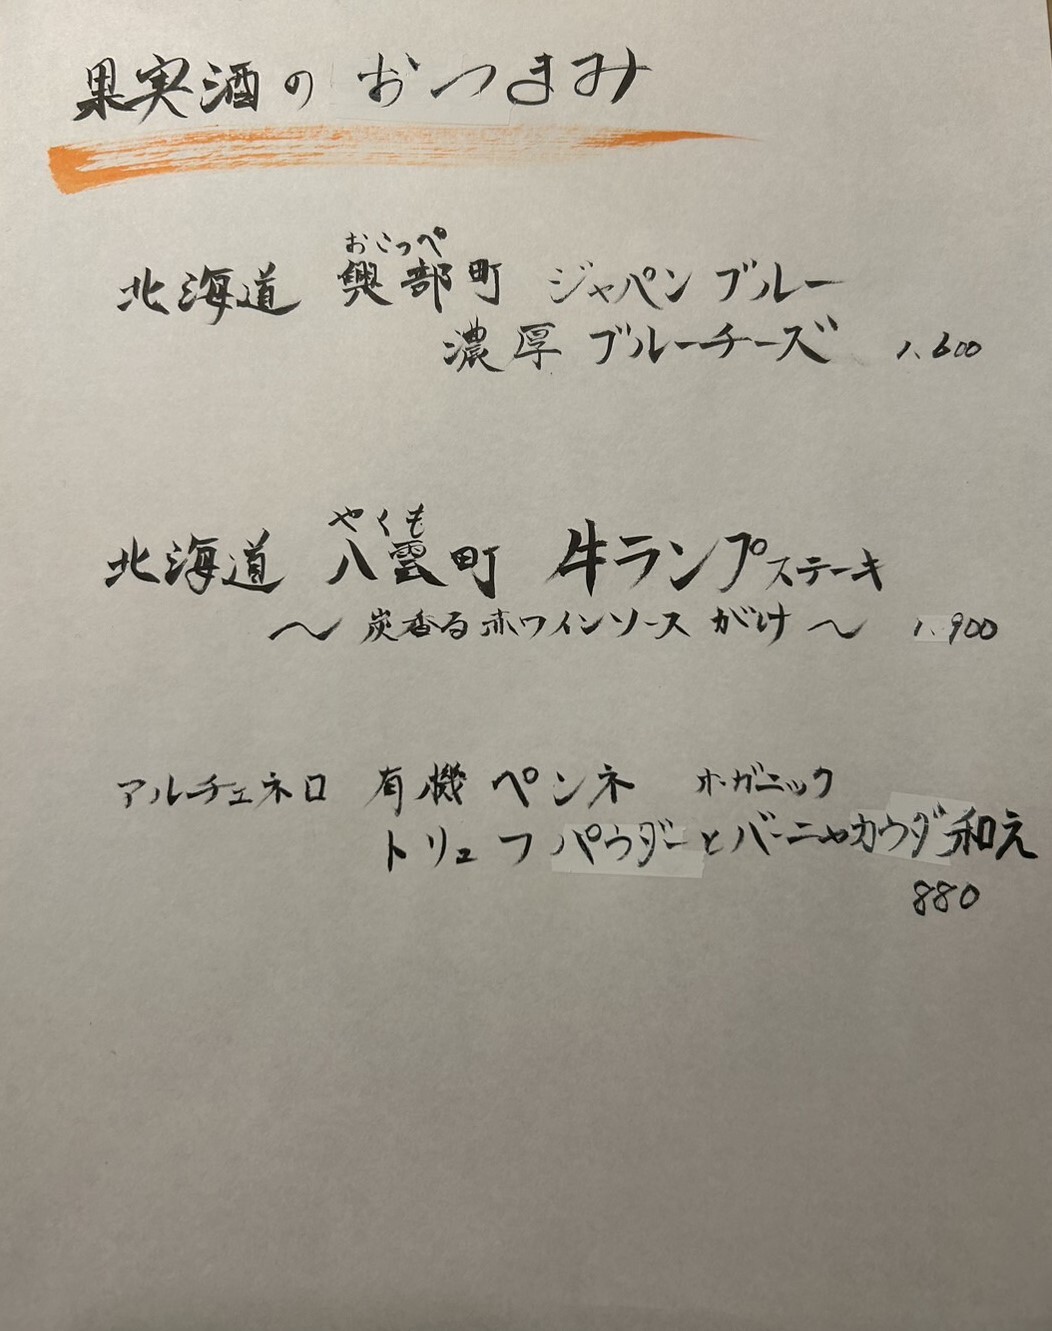 果実酒のおつまみ
おこっぺ
北海道 興部町 ジャパンブルー
濃厚 ブルーチーズ 1,600
やくも
北海道 八雲町 牛ランプステーキ
〜炭香るホワインソースがけ〜 1,900
アルチェネロ 有機ペンネ オーガニック
トリュフパウダーとバーニャカウダ和え
880